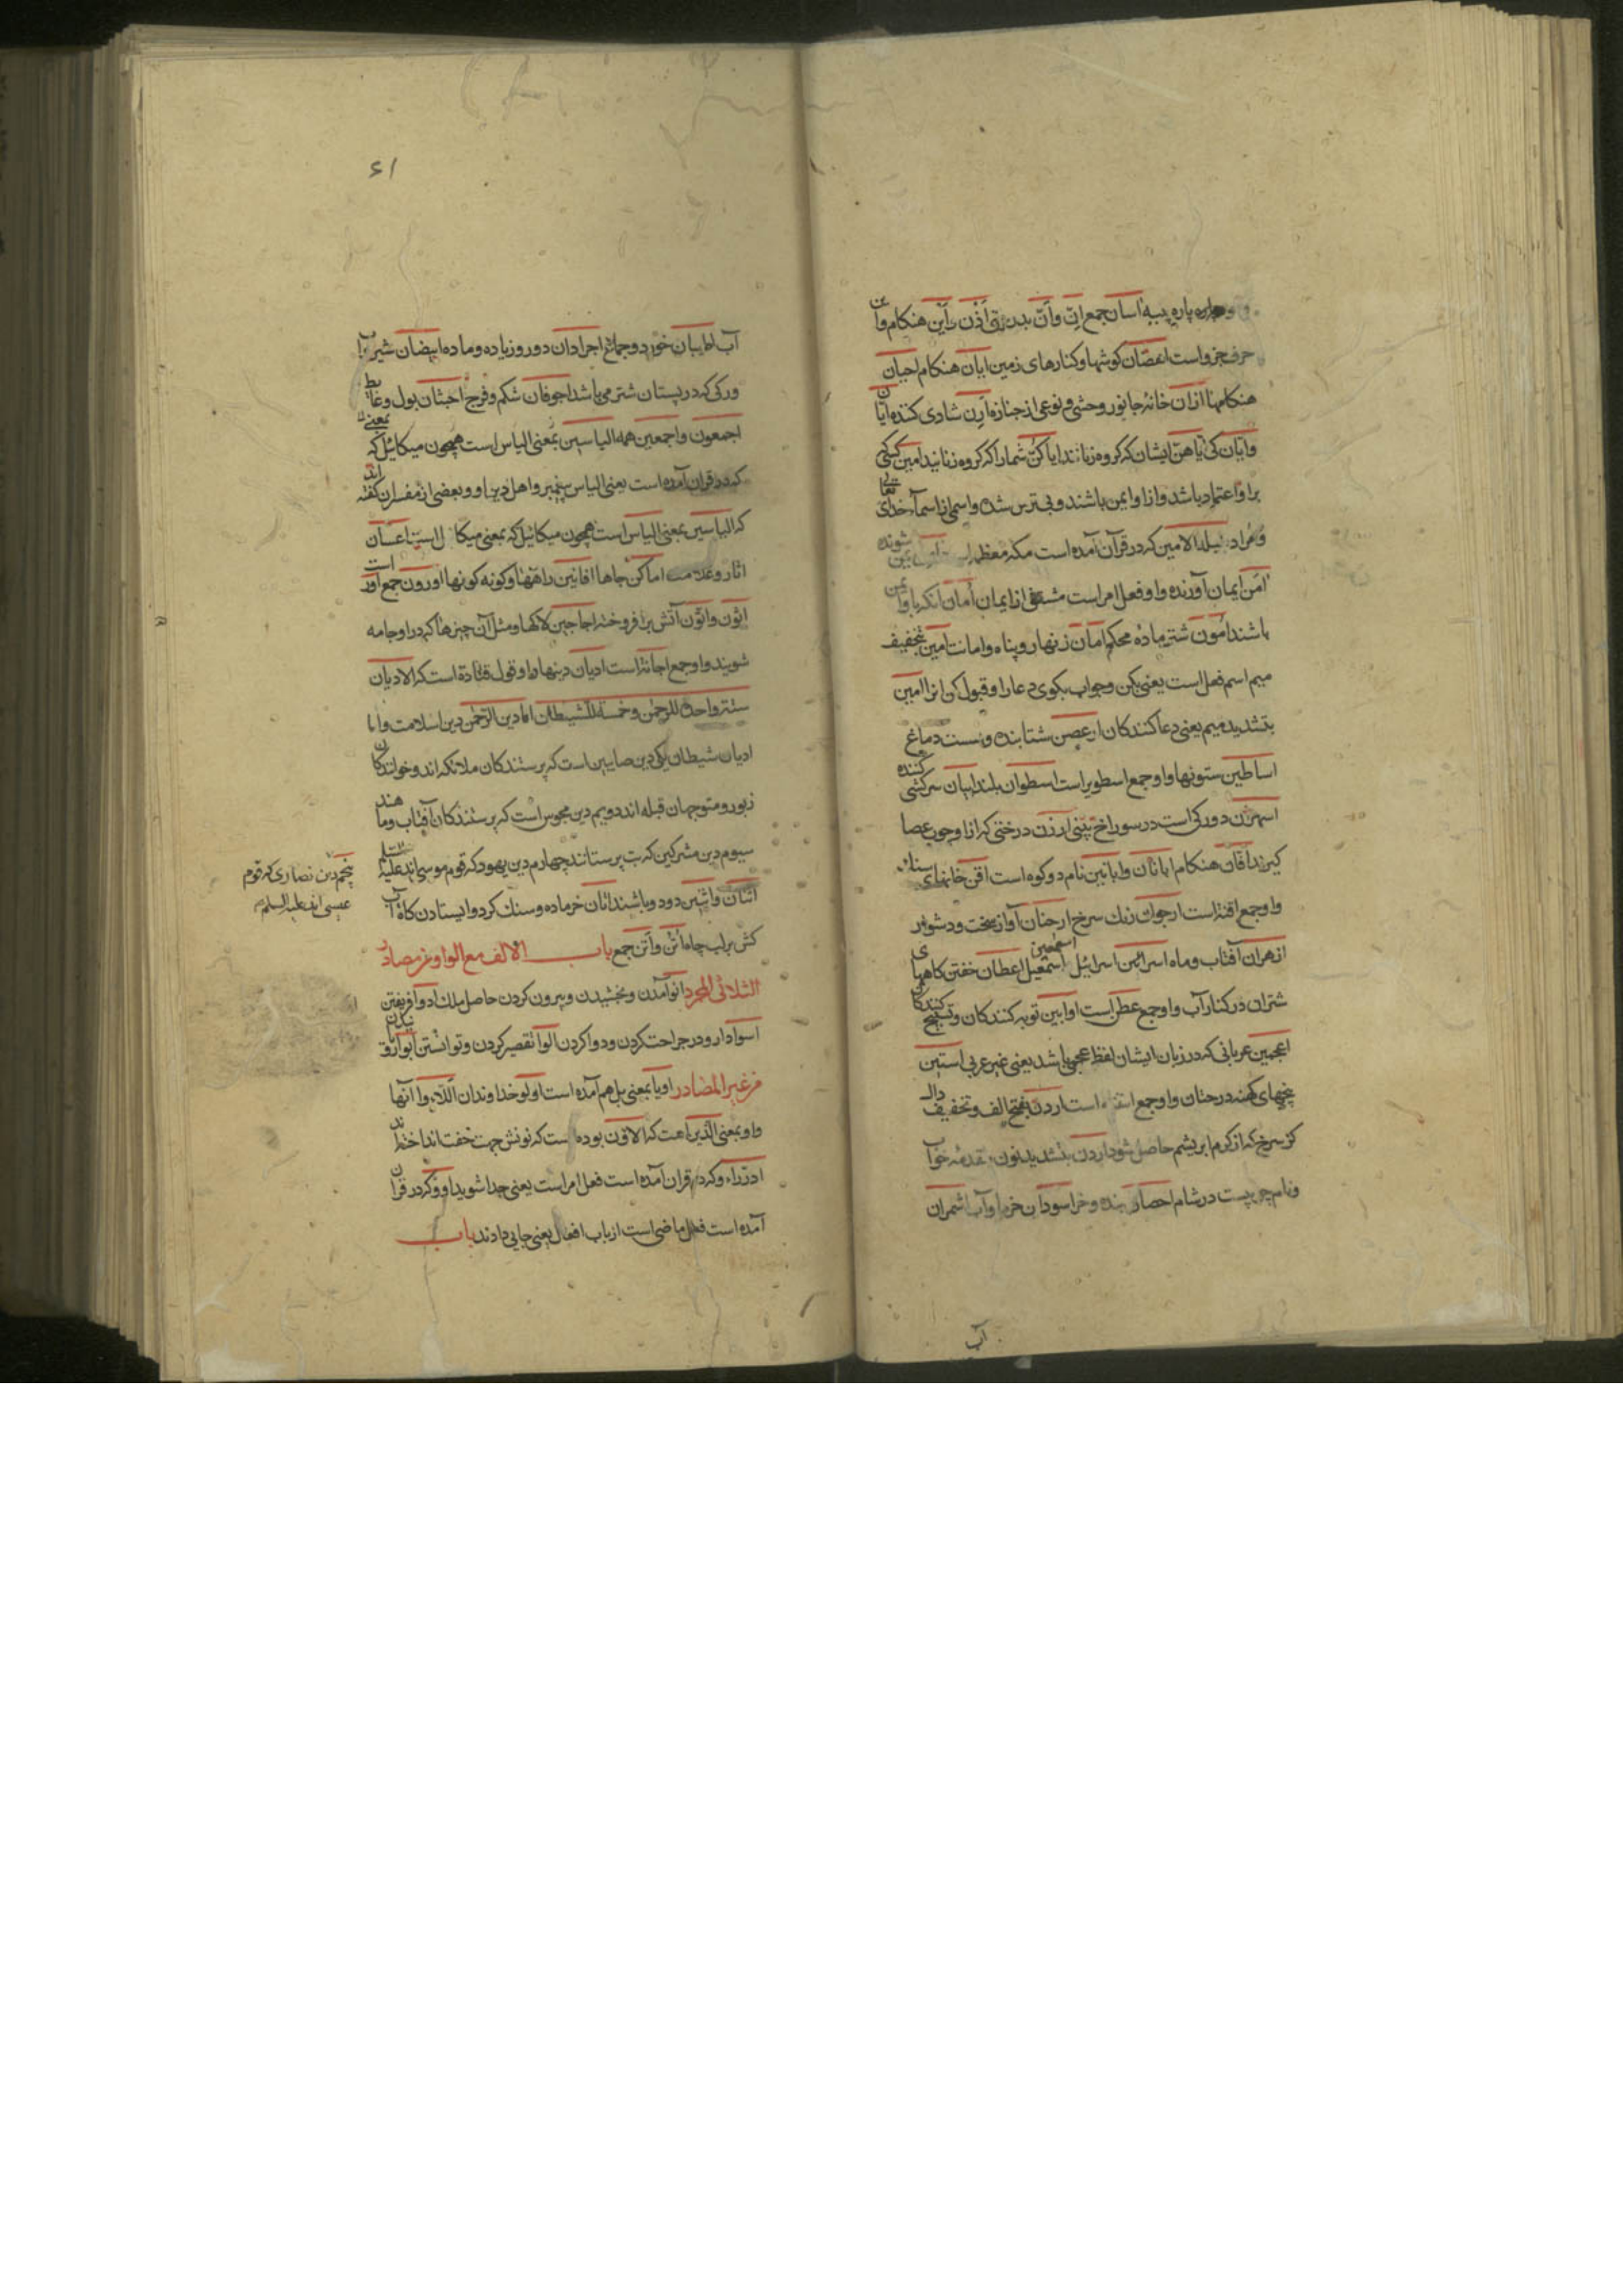 پاره پیه اسان جمع ان وان بدرستی اذن این هنکام وان
حرف جزو است اغصان کوشها و کنارهای زمین ابان هنکام احیان
هنکامها ازان خانهٔ جانور وحشی و نوعی از جنازه ارن شادی کننده ایان
وایان کی ایاهن ایشان که کروه زنانند ایاکن شما را که کروه زنانید امین کسی که
براو اعتماد باشد و ازو ایمن باشند و بی ترس شده و اسمی از اسماء خدای تعالی
و مراد بلد الامین که در قرآن آمده است مکه معظمه شونده
امن ایمان آورنده و او فعل امر است مشتق از ایمان امان انکه با او ایمن
باشند امون شتر مادهٔ محکم امان زنهار و پناه و امانت امین بتخفیف
میم اسم فعل است یعنی بکن و جواب بکوی دعا را و قبول کن انرا امین
بتشدید میم یعنی دعا کنندکان شتابنده و سست دماغ
اساطین ستونها و او جمع اسطوانه است اسطوان بلند ابیان سرکشی کننده
اسهران دو رکی است در سوراخ بینی ارزن درختی که از او چوب عصا
کیرند افان هنکام ابانان و ابانین نام دو کوه است اقن خانهای سنک
و او جمع اقنه است ارجوان رنک سرخ ارحنان آواز سخت و دشوار
ازهران آفتاب و ماه اسرائین اسرائیل اسمعین اسمعیل اعطان خفتن کاههای
شتران در کنار آب و او جمع عطن است اوابین توبه کنندکان و تسبیح کنندکان
اعجمین عربانی که در زبان ایشان لفظ عجمی باشد یعنی غیر عربی استین
بیخهای کهنه درختان و او جمع است اردن بفتح الف و تخفیف دال
کز سرخ که از کرم ابریشم حاصل شود اردن بتشدید نون مقدمهٔ خواب
و نام جوییست در شام احصان بنده و خر اسودان خرما و آب اثمران
آب
۶۱
آب اطیبان خورد و جماع اجرادان دو روز یاده و ماده ابیضان شیر و آب
و رکی که در پستان شتر می باشد اجوفان شکم و فرج اخبثان بول و غایط
اجمعون و اجمعین همه الیاسین بمعنی الیاس است همچون میکائیل که بمعنی
که در قرآن آمده است یعنی الیاس پیغمبر و اهل دین او و بعضی از مفسران کفته اند
که الیاسین بمعنی الیاس است همچون میکائیل که بمعنی میکال است اعسان
اثار و علامت اماکن جاها افانین راهها و کونه کونها اورون جمع اور است
اتون و اتون آتش برافروخته اجاجین لاکها و مثل آن چیزها که در او جامه
شویند و او جمع اجانه است ادیان دینها و قول قتاده است که الادیان
ستة واحدة للرحمن و خمسة للشیطان اما دین الرحمن دین اسلامست و اما
ادیان شیطان یکی دین صابیین است که پرستندکان ملائکه اند و خوانندکان
زبور و متوجهان قبله اند دویم دین مجوس است که پرستندکان آفتاب و ماهند
سیوم دین مشرکین که بت پرستانند چهارم دین یهود که قوم موسی اند علیه السلام
پنجم دین نصاری که قوم
عیسی اند علیه السلم
اثنان و اثنین دو و دو باشند اتان خر ماده و سنک کرد و ایستادن کاه آب
کش بر لب چاه اتن و اتن جمع باب الالف مع الواو من مصادر
الثلاثی المجرد اتو آمدن و بخشیدن و بیرون کردن حاصل ملک ادو فریفتن
اسو دارو در جراحت کردن و دوا کردن الو تقصیر کردن و توانستن
من غیر المصادر او یا بمعنی بل هم آمده است اولو خداوندان الّاؤا آنها
و او بمعنی الذین است که الاؤن بوده است که نونش جهت خفت انداخته اند
ادرؤا که در قرآن آمده است فعل امر است یعنی جدا شوید اووا که در قرآن
آمده است فعل ماضی است از باب افعال یعنی جایی دادند باب